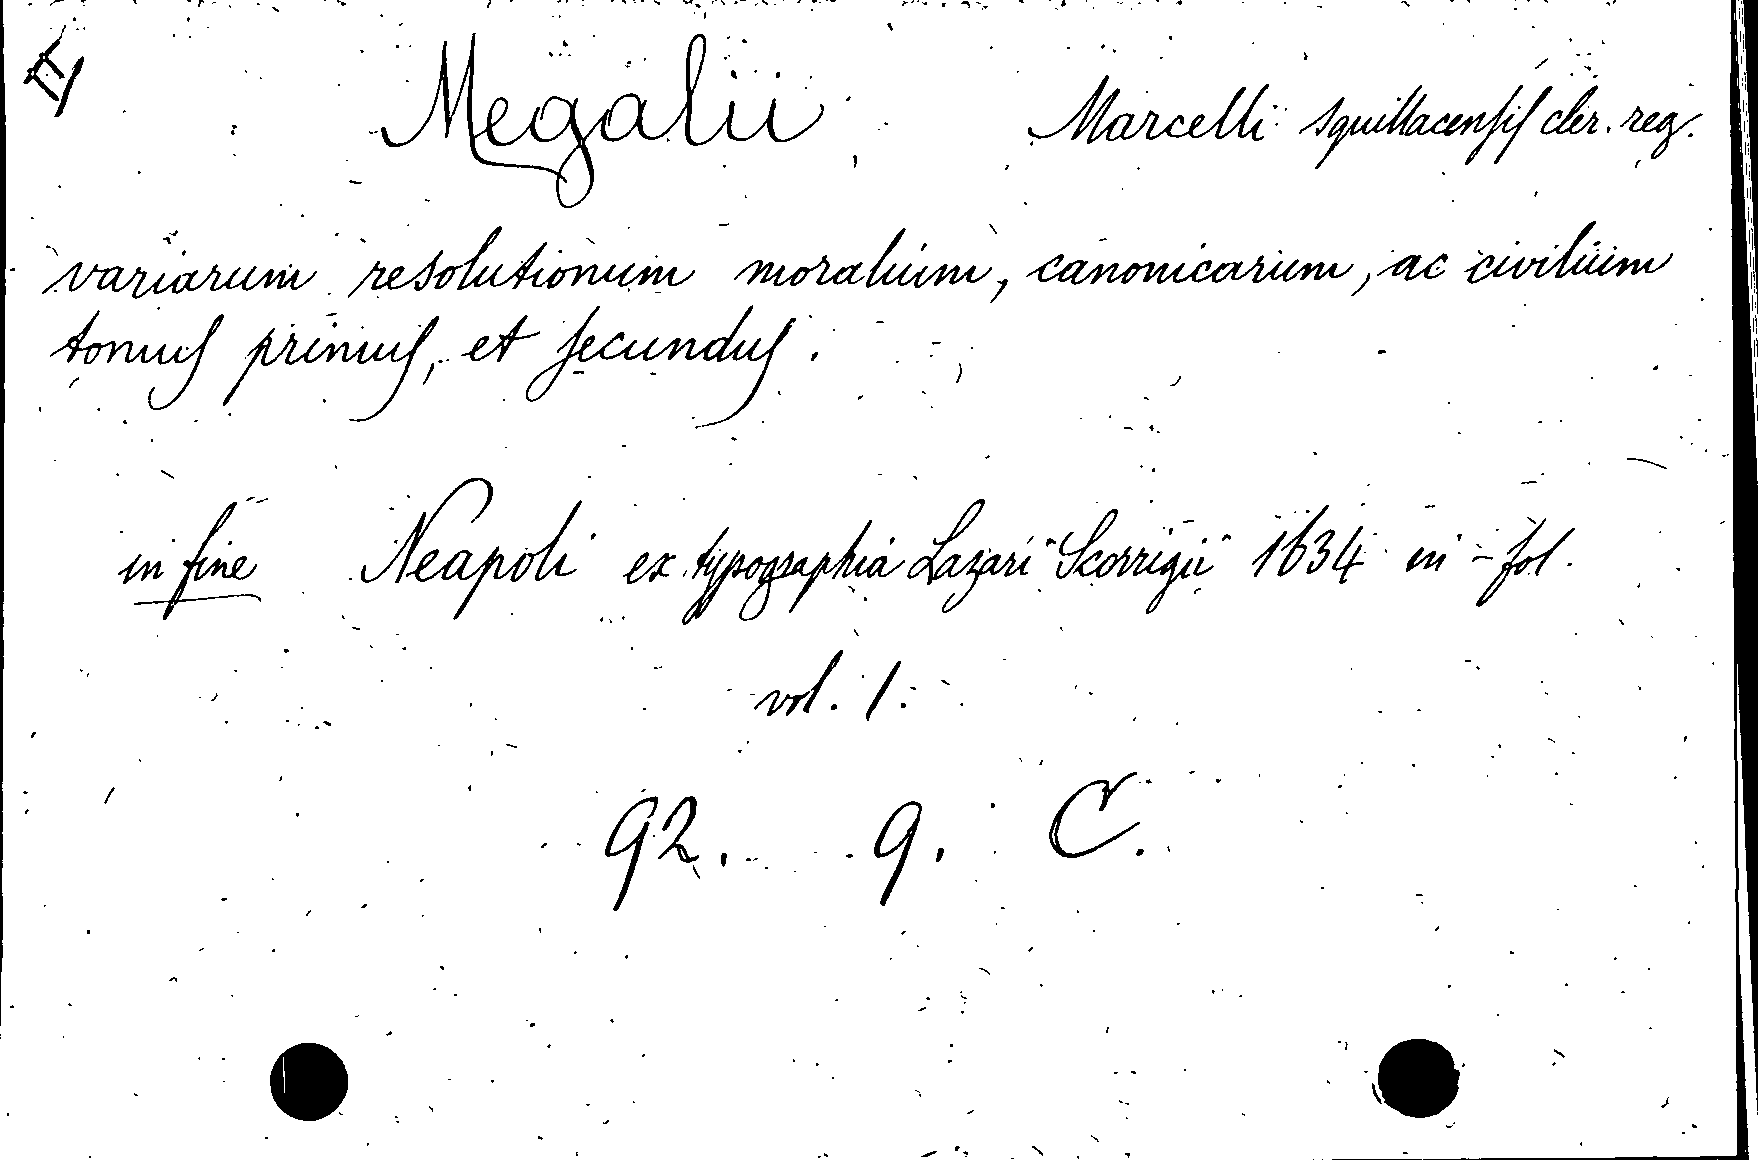 Megalii Marcelli squillacensis cler. reg.
variarum resolutionum moralium, canonicarum, ac civilium
tomus primus, et secundus.
in fine Neapoli ex typographia Lazari Scorrigii 1634 in-fol.
vol. 1.
92. 9. C.